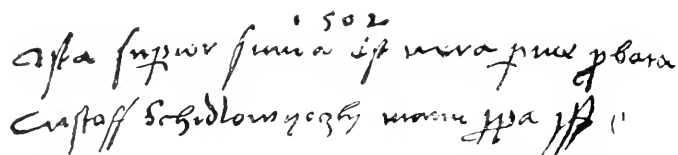 1502
Ista superior summa est mera pure probata
Cristoff Schidlowyeczky manu ppa sst